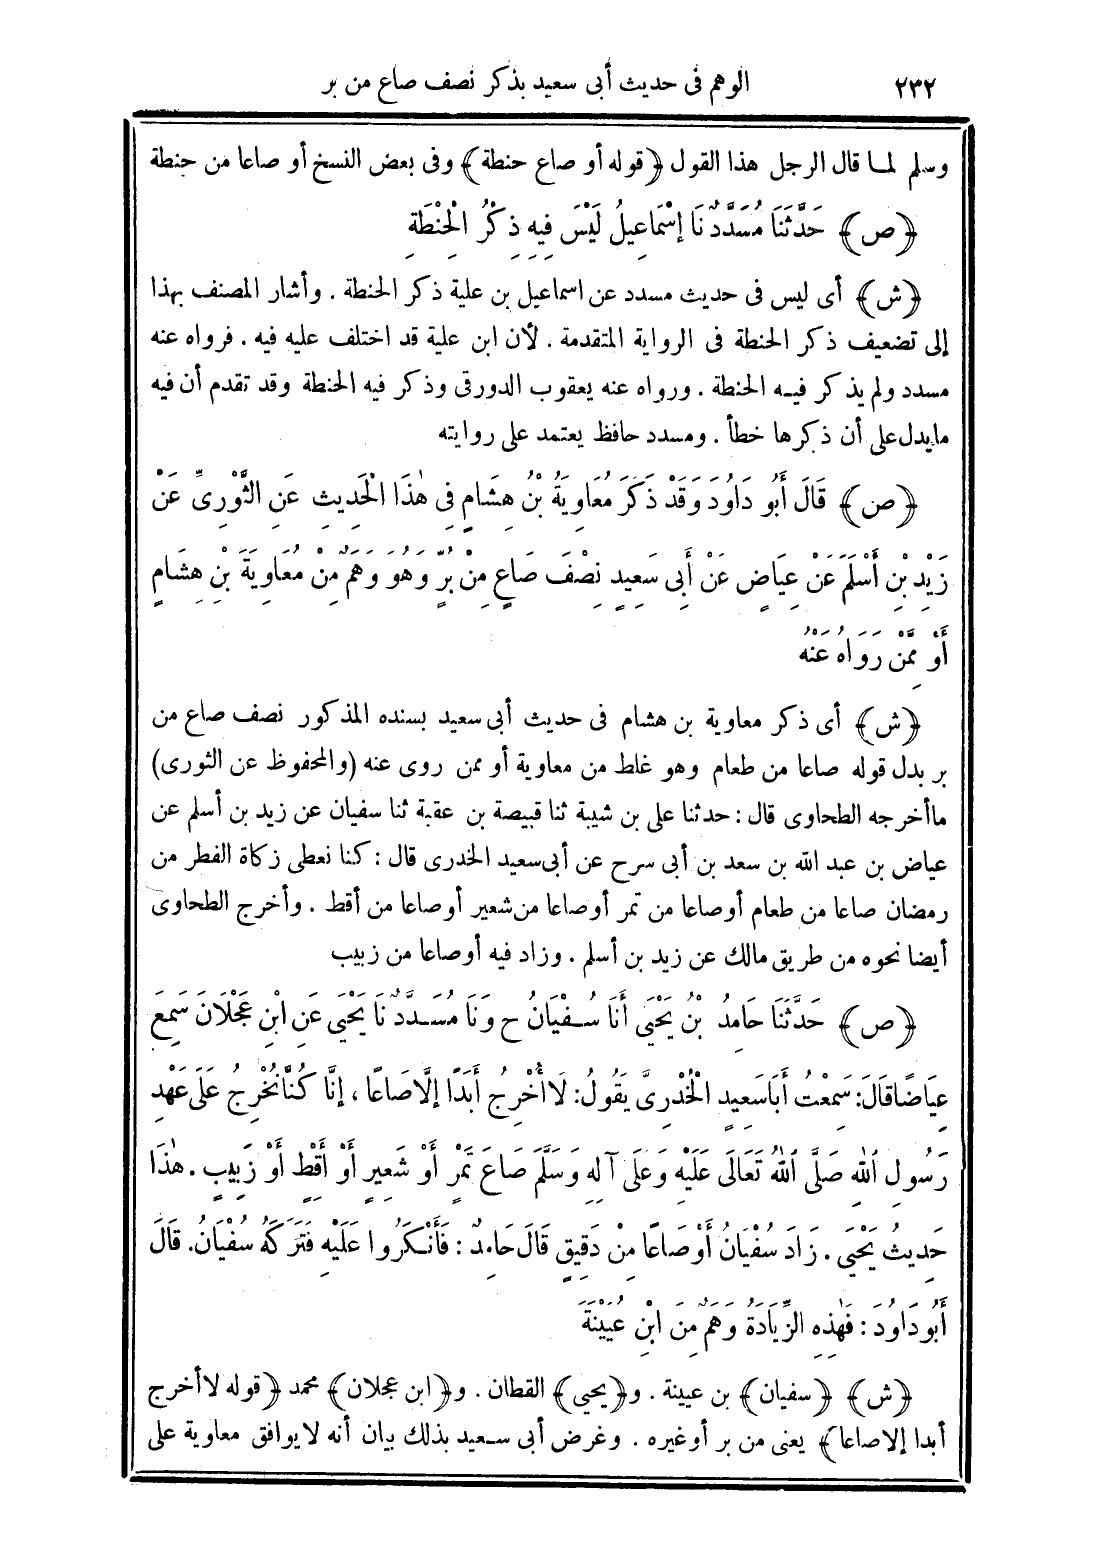 ٢٣٢ الوهم فى حديث أبى سعيد بذكر نصف صاع من بر
وسلم لمـا قال الرجل هذا القول ﴿قوله أو صاع حنطة﴾ وفى بعض النسخ أو صاعا من حنطة
﴿ص﴾ حَدَّثَنَا مُسَدَّدٌ نَا إِسْمَاعِيلُ لَيْسَ فِيهِ ذِكْرُ الْحِنْطَةِ
﴿ش﴾ أى ليس فى حديث مسدد عن اسماعيل بن علية ذكر الحنطة . وأشار المصنف بهذا
إلى تضعيف ذكر الحنطة فى الرواية المتقدمة . لأن ابن علية قد اختلف عليه فيه . فرواه عنه
مسدد ولم يذكر فيـه الحنطة . ورواه عنه يعقوب الدورقى وذكر فيه الحنطة وقد تقدم أن فيه
مايدل على أن ذكرها خطأ . ومسدد حافظ يعتمد على روايته
﴿ص﴾ قَالَ أَبُو دَاوُدَ وَقَدْ ذَكَرَ مُعَاوِيَةُ بْنُ هِشَامٍ فِى هٰذَا الْحَدِيثِ عَنِ الثَّوْرِىِّ عَنْ
زَيْدِ بْنِ أَسْلَمَ عَنْ عِيَاضٍ عَنْ أَبِى سَعِيدٍ نِصْفَ صَاعٍ مِنْ بُرٍّ وَهُوَ وَهَمٌ مِنْ مُعَاوِيَةَ بْنِ هِشَامٍ
أَوْ مِمَّنْ رَوَاهُ عَنْهُ
﴿ش﴾ أى ذكر معاوية بن هشام فى حديث أبى سعيد بسنده المذكور نصف صاع من
بر بدل قوله صاعا من طعام وهو غلط من معاوية أو ممن روى عنه (والمحفوظ عن الثورى)
ماأخرجه الطحاوى قال : حدثنا على بن شيبة ثنا قبيصة بن عقبة ثنا سفيان عن زيد بن أسلم عن
عياض بن عبد الله بن سعد بن أبى سرح عن أبى سعيد الخدرى قال : كنا نعطى زكاة الفطر من
رمضان صاعا من طعام أوصاعا من تمر أوصاعا من شعير أوصاعا من أقط . وأخرج الطحاوى
أيضا نحوه من طريق مالك عن زيد بن أسلم . وزاد فيه أوصاعا من زبيب
﴿ص﴾ حَدَّثَنَا حَامِدُ بْنُ يَحْيَى أَنَا سُـفْيَانُ ح وَنَا مُسَـدَّدٌ نَا يَحْيَى عَنِ ابْنِ عَجْلَانَ سَمِعَ
عِيَاضًا قَالَ: سَمِعْتُ أَبَا سَعِيدٍ الْخُدْرِىَّ يَقُولُ: لَا أُخْرِجُ أَبَدًا إِلَّا صَاعًا ، إِنَّا كُنَّا نُخْرِجُ عَلَى عَهْدِ
رَسُولِ ٱللهِ صَلَّى ٱللهُ تَعَالَى عَلَيْهِ وَعَلَى آلِهِ وَسَلَّمَ صَاعَ تَمْرٍ أَوْ شَعِيرٍ أَوْ أَقِطٍ أَوْ زَبِيبٍ . هٰذَا
حَدِيثُ يَحْيَى . زَادَ سُفْيَانُ أَوْ صَاعًا مِنْ دَقِيقٍ قَالَ حَامِدٌ : فَأَنْـكَرُوا عَلَيْهِ فَتَرَكَهُ سُفْيَانُ. قَالَ
أَبُو دَاوُدَ : فَهٰذِهِ الزِّيَادَةُ وَهَمٌ مِنَ ابْنِ عُيَيْنَةَ
﴿ش﴾ ﴿سفيان﴾ بن عيينة . و﴿يحيى﴾ القطان . و﴿ابن عجلان﴾ محمد ﴿قوله لاأخرج
أبدا إلاصاعا﴾ يعنى من بر أوغيره . وغرض أبى سـعيد بذلك بيان أنه لايوافق معاوية على